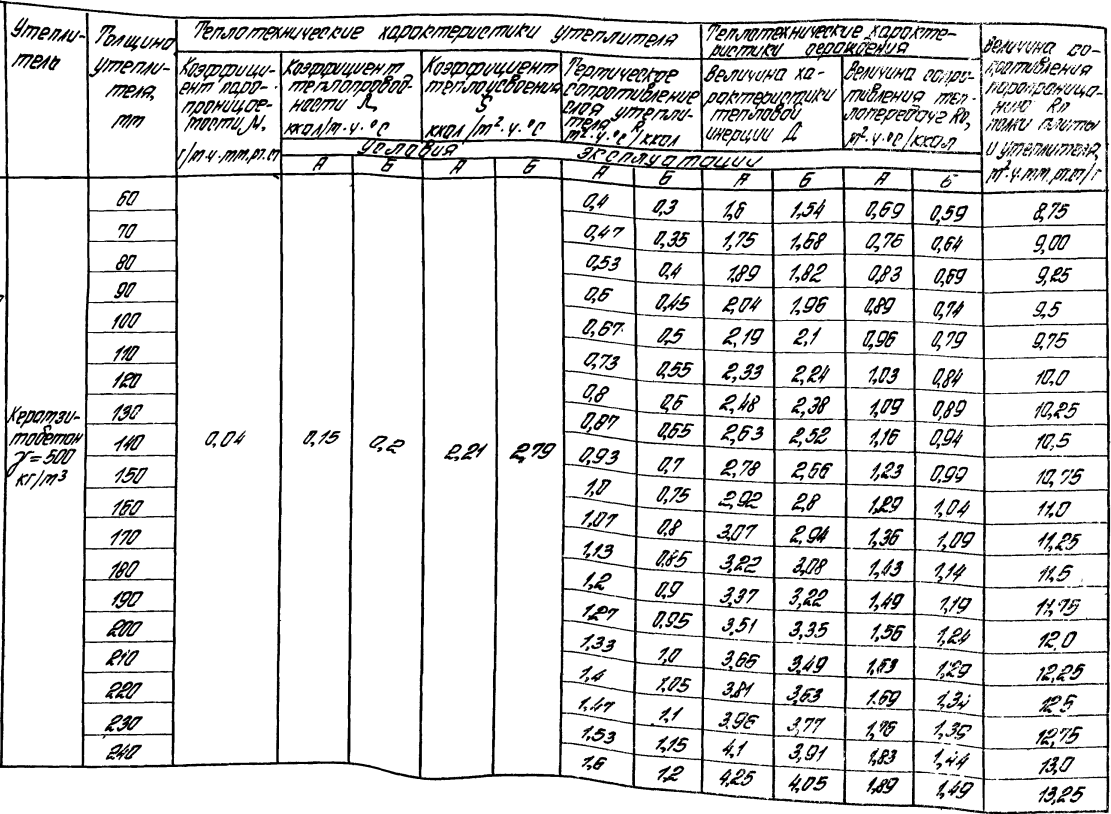 Утепли-
тель
Толщина
утепли-
теля,
мм
Теплотехнические характеристики утеплителя
Теплотехнические характе-
ристики ограждения
Величина со-
противления
паропроница-
нию Rп
полки плиты
и утеплителя,
м².ч.мм.рт.ст/г
Коэффици-
ент паро-
проницае-
мости, μ,
г/м.ч.мм.рт.ст
Коэффициент
теплопровод-
ности λ,
ккал/м.ч.°С
Коэффициент
теплоусвоения
S
ккал/м².ч.°С
Термическое
сопротивление
слоя утепли-
теля R,
м².ч.°С/ккал
Величина ха-
рактеристики
тепловой
инерции Д
Величина сопро-
тивления теп-
лопередаче Ro,
м².ч.°С/ккал
Условия эксплуатации
А Б А Б А Б А Б А Б
Керамзи-
тобетон
γ=500
кг/м3
0,04 0,15 0,2 2,21 2,79
60 0,4 0,3 1,6 1,54 0,69 0,59 8,75
70 0,47 0,35 1,75 1,68 0,76 0,64 9,00
80 0,53 0,4 1,89 1,82 0,83 0,69 9,25
90 0,6 0,45 2,04 1,96 0,89 0,74 9,5
100 0,67 0,5 2,19 2,1 0,96 0,79 9,75
110 0,73 0,55 2,33 2,24 1,03 0,84 10,0
120 0,8 0,6 2,48 2,38 1,09 0,89 10,25
130 0,87 0,65 2,63 2,52 1,16 0,94 10,5
140 0,93 0,7 2,78 2,66 1,23 0,99 10,75
150 1,0 0,75 2,92 2,8 1,29 1,04 11,0
160 1,07 0,8 3,07 2,94 1,36 1,09 11,25
170 1,13 0,85 3,22 3,08 1,43 1,14 11,5
180 1,2 0,9 3,37 3,22 1,49 1,19 11,75
190 1,27 0,95 3,51 3,35 1,56 1,24 12,0
200 1,33 1,0 3,66 3,49 1,63 1,29 12,25
210 1,4 1,05 3,81 3,63 1,69 12,5
220 1,47 1,1 3,96 3,77 1,76 1,39 12,75
230 1,53 1,15 4,1 3,91 1,83 1,44 13,0
240 1,6 1,2 4,25 4,05 1,89 1,49 13,25